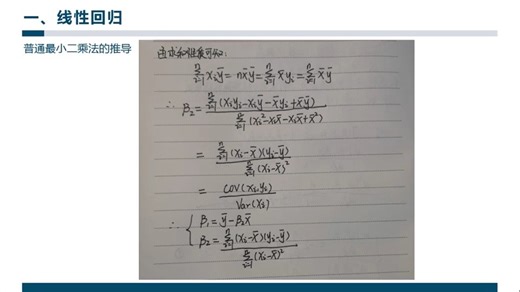 一、线性回归
普通最小二乘法的推导
由求和性质可知:
∑_{i=1}^{n} x_i ȳ = n x̄ ȳ = ∑_{i=1}^{n} x̄ y_i = ∑_{i=1}^{n} x̄ ȳ
∴ β₂ = ∑_{i=1}^{n} (x_i y_i - x_i ȳ - x̄ y_i + x̄ ȳ) / ∑_{i=1}^{n} (x_i² - x_i x̄ - x_i x̄ + x̄²)
= ∑_{i=1}^{n} (x_i - x̄)(y_i - ȳ) / ∑_{i=1}^{n} (x_i - x̄)²
= COV(x_i, y_i) / Var(x_i)
∴ { β₁ = ȳ - β₂ x̄
β₂ = ∑_{i=1}^{n} (x_i - x̄)(y_i - ȳ) / ∑_{i=1}^{n} (x_i - x̄)²